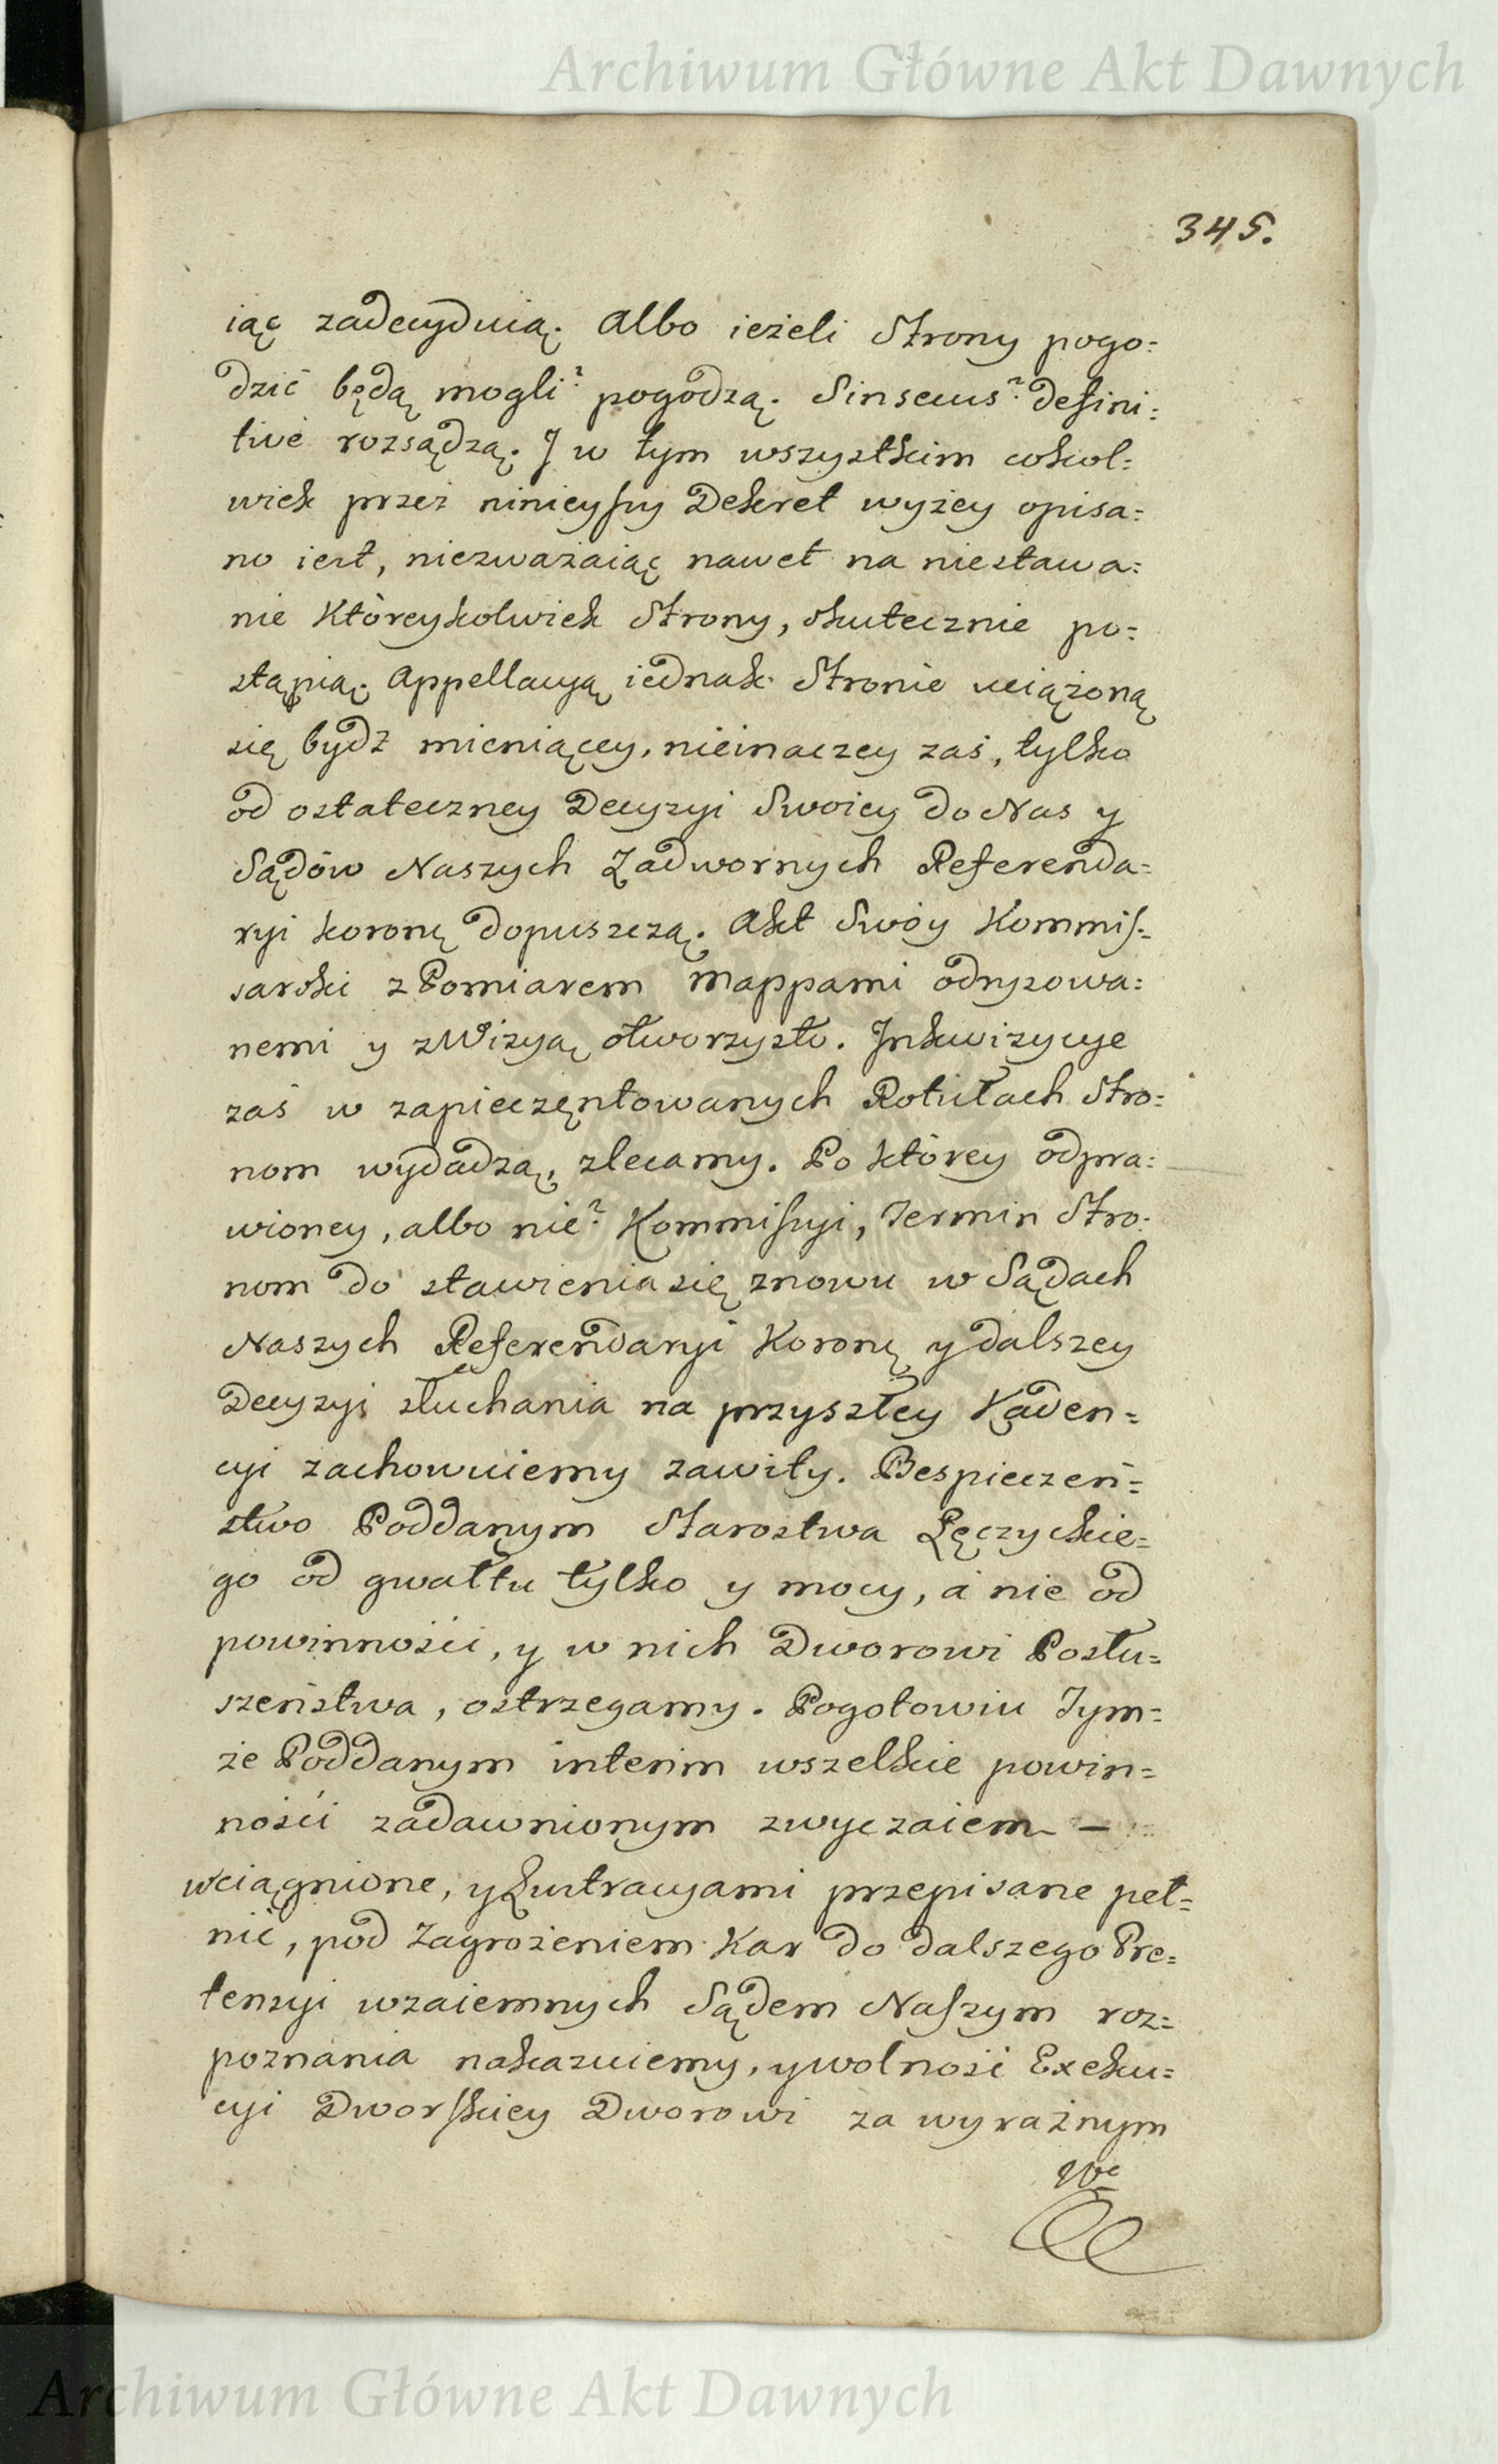 Archiwum Główne Akt Dawnych
345.
iąc zadecyduią. Albo ieżeli Strony pogo=
dzić będą mogli? pogodzą. Sinsecus? defini=
tivé rozsądzą. J w tym wszystkim cokol=
wiek przez ninieyszy Dekret wyżey opisa=
no iest, niezważaiąc nawet na niestawa=
nie Któreykolwiek Strony, skutecznie po=
stąpią. Appellacyą iednak Stronie uciążoną
się bydź mieniącey, nieinaczey zaś, tylko
od ostateczney Decyzyi Swoiey do Nas y
Sądów Naszych Zadwornych Referenda=
ryi koronę dopuszczą. Akt Swóy Kommis=
sarski z Pomiarem Mappami odrysowa=
nemi y z Wizyą otworzysto. Jnkwizycye
zaś w zapieczętowanych Rotułach Stro=
nom wydadzą, zlecamy. Po którey odpra=
wioney, albo nie? Kommissyi, Termin Stro=
nom do stawienia się znowu w Sądach
Naszych Referendaryi Koronę y dalszey
Decyzyi słuchania na przyszłey Kaden=
cyi zachowuiemy zawity. Bespieczeń=
stwo Poddanym Starostwa Łęczyckie=
go od gwałtu tylko y mocy, a nie od
powinności, y w nich Dworowi Posłu=
szeństwa, ostrzegamy. Pogotowiu Tym=
że Poddanym interim wszelkie powin=
ności zadawnionym zwyczaiem —
wciągnione, y Lustracyami przepisane peł=
nić, pod Zagrożeniem Kar do dalszego Pre=
tensyi wzaiemnych Sądem Naszym roz=
poznania nakazuiemy, y wolność Exeku=
cyi Dworskiey Dworowi za wyraźnym
We
Archiwum Główne Akt Dawnych